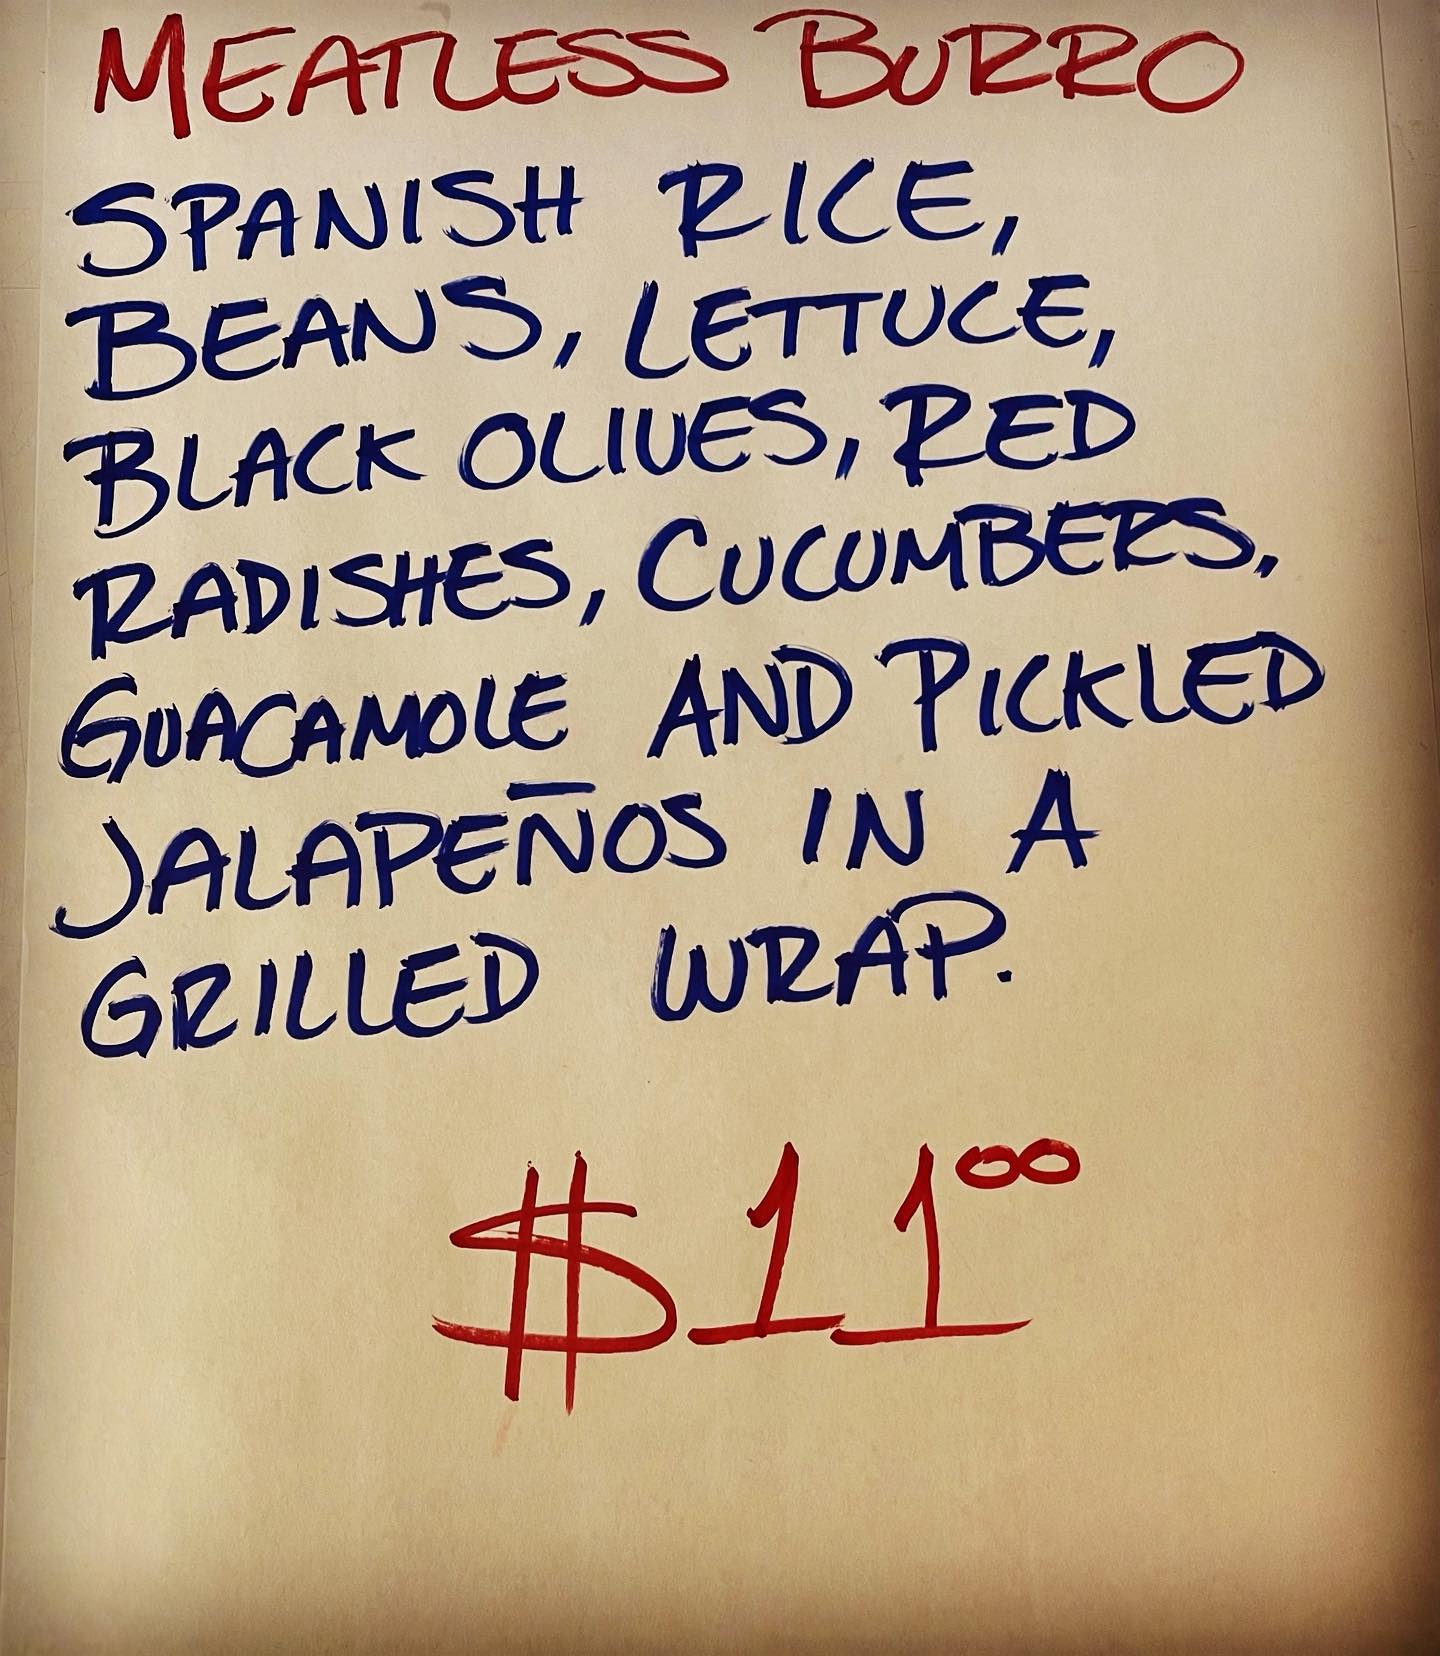 MEATLESS BURRO
SPANISH RICE,
BEANS, LETTUCE,
BLACK OLIVES, RED
RADISHES, CUCUMBERS,
GUACAMOLE AND PICKLED
JALAPEÑOS IN A
GRILLED WRAP.
$11⁰⁰